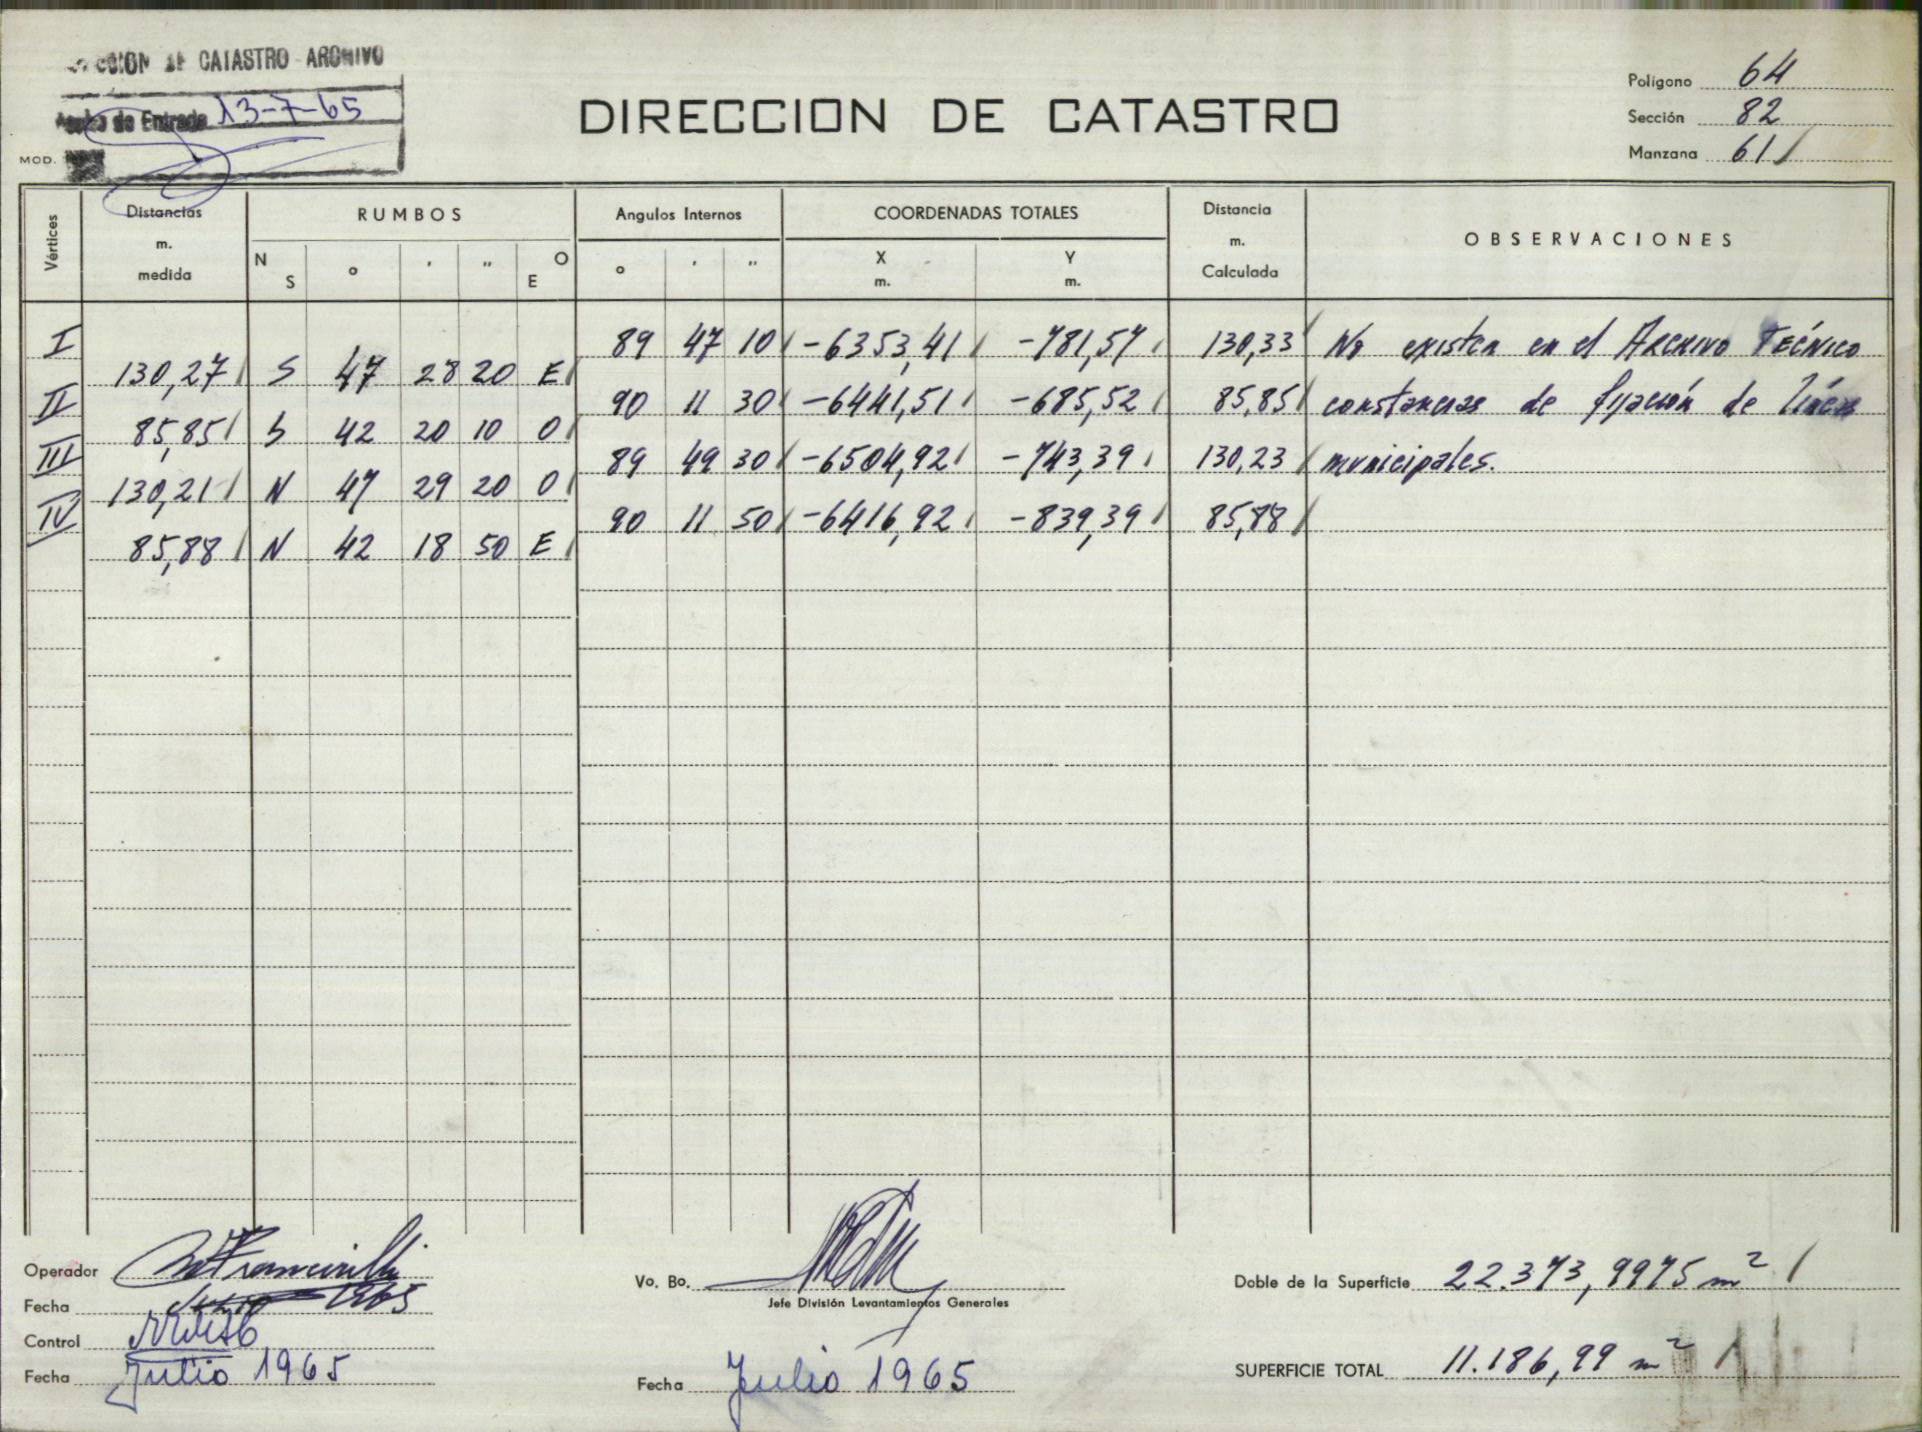 CATASTRO ARCHIVO
de Entrada 13-7-65
MOD.
DIRECCION DE CATASTRO
Polígono 64
Sección 82
Manzana 61
Vértices
Distancias m. medida
RUMBOS
N S ° ' " O E
Angulos Internos
° ' "
COORDENADAS TOTALES
X m. Y m.
Distancia m. Calculada
OBSERVACIONES
I 89 47 10 -6353,41 -781,57 130,33 No existen en el ARCHIVO TECNICO
130,27 S 47 28 20 E
II 90 11 30 -6441,51 -685,52 85,85 constancias de fijación de líneas
85,85 S 42 20 10 O
III 89 49 30 -6504,92 -743,39 130,23 municipales.
130,21 N 47 29 20 O
IV 90 11 50 -6416,92 -839,39 85,88
85,88 N 42 18 50 E
Operador
Fecha 1965
Control
Fecha Julio 1965
Vo. Bo.
Jefe División Levantamientos Generales
Fecha Julio 1965
Doble de la Superficie 22.373,9975 m²
SUPERFICIE TOTAL 11.186,99 m²